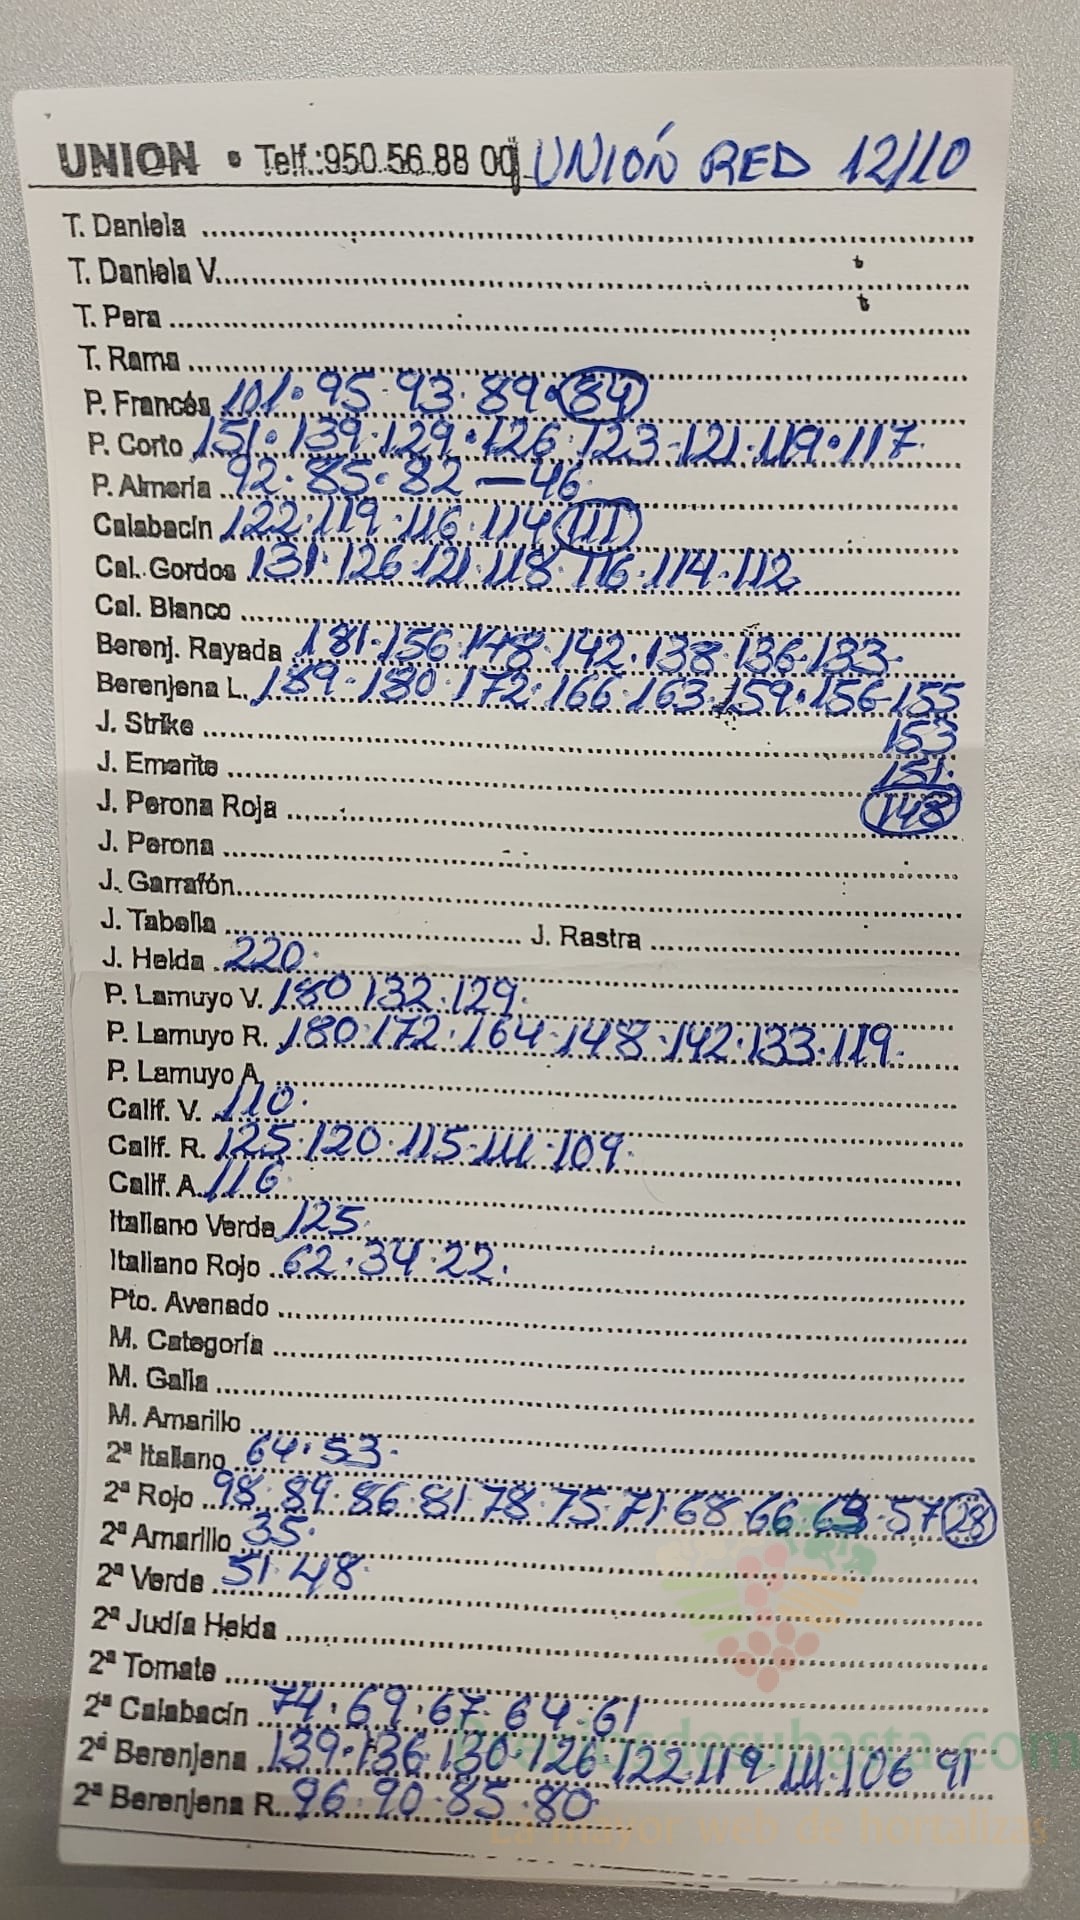 UNION • Telf.:950.56.88 00 UNIÓN RED 12/10
T. Daniela
T. Daniela V.
T. Pera
T. Rama
P. Francés 101·95·93·89·84
P. Corto 151·139·129·126·123-121·119·117
P. Almería 92·85·82—46
Calabacín 122·119·116·114 111
Cal. Gordos 131·126·121·118·116·114·112
Cal. Blanco
Berenj. Rayada 181·156·148·142·138·136·133
Berenjena L. 189·180·172·166·163·159·156-155
J. Strike 153
J. Emerite 151
J. Perona Roja 148
J. Perona
J. Garrafón
J. Tabella J. Rastra
J. Helda 220
P. Lamuyo V. 180 132·129
P. Lamuyo R. 180·172·164·148·142·133·119
P. Lamuyo A.
Calif. V. 110
Calif. R. 125·120·115·111·109
Calif. A. 116
Italiano Verde 125
Italiano Rojo 62·34·22
Pto. Avenado
M. Categoría
M. Galia
M. Amarillo
2ª Italiano 64·53
2ª Rojo 98·89·86·81·78·75·71·68·66 57 28
2ª Amarillo 35
2ª Verde 51·48
2ª Judía Helda
2ª Tomate
2ª Calabacín 74·69·67·64·61
2ª Berenjena 139·136·130·126·122·119·111·106 91
2ª Berenjena R. 96·90·85·80
La mayor web de hortalizas